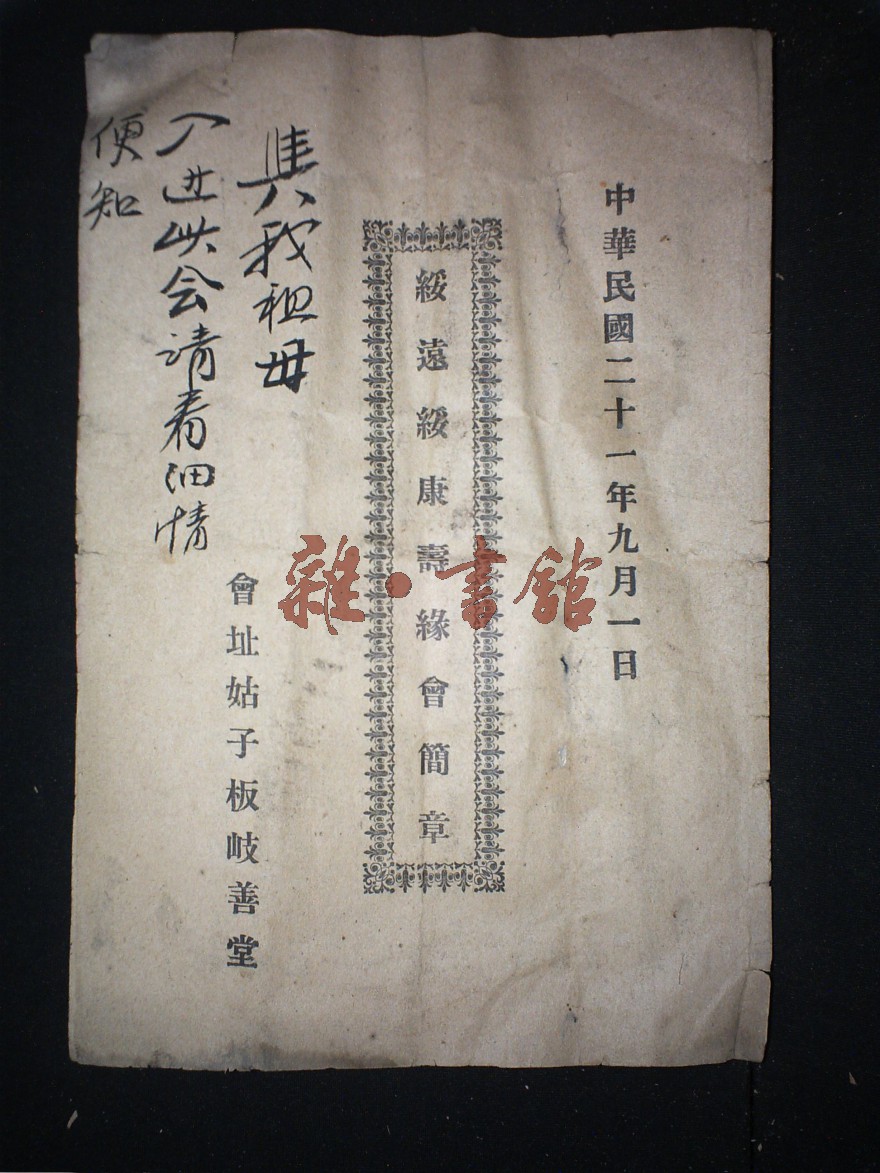 中華民國二十一年九月一日
綏遠綏康壽緣會簡章
我祖母
入进此会请看细情
便知
會址姑子板岐善堂
雜·書館